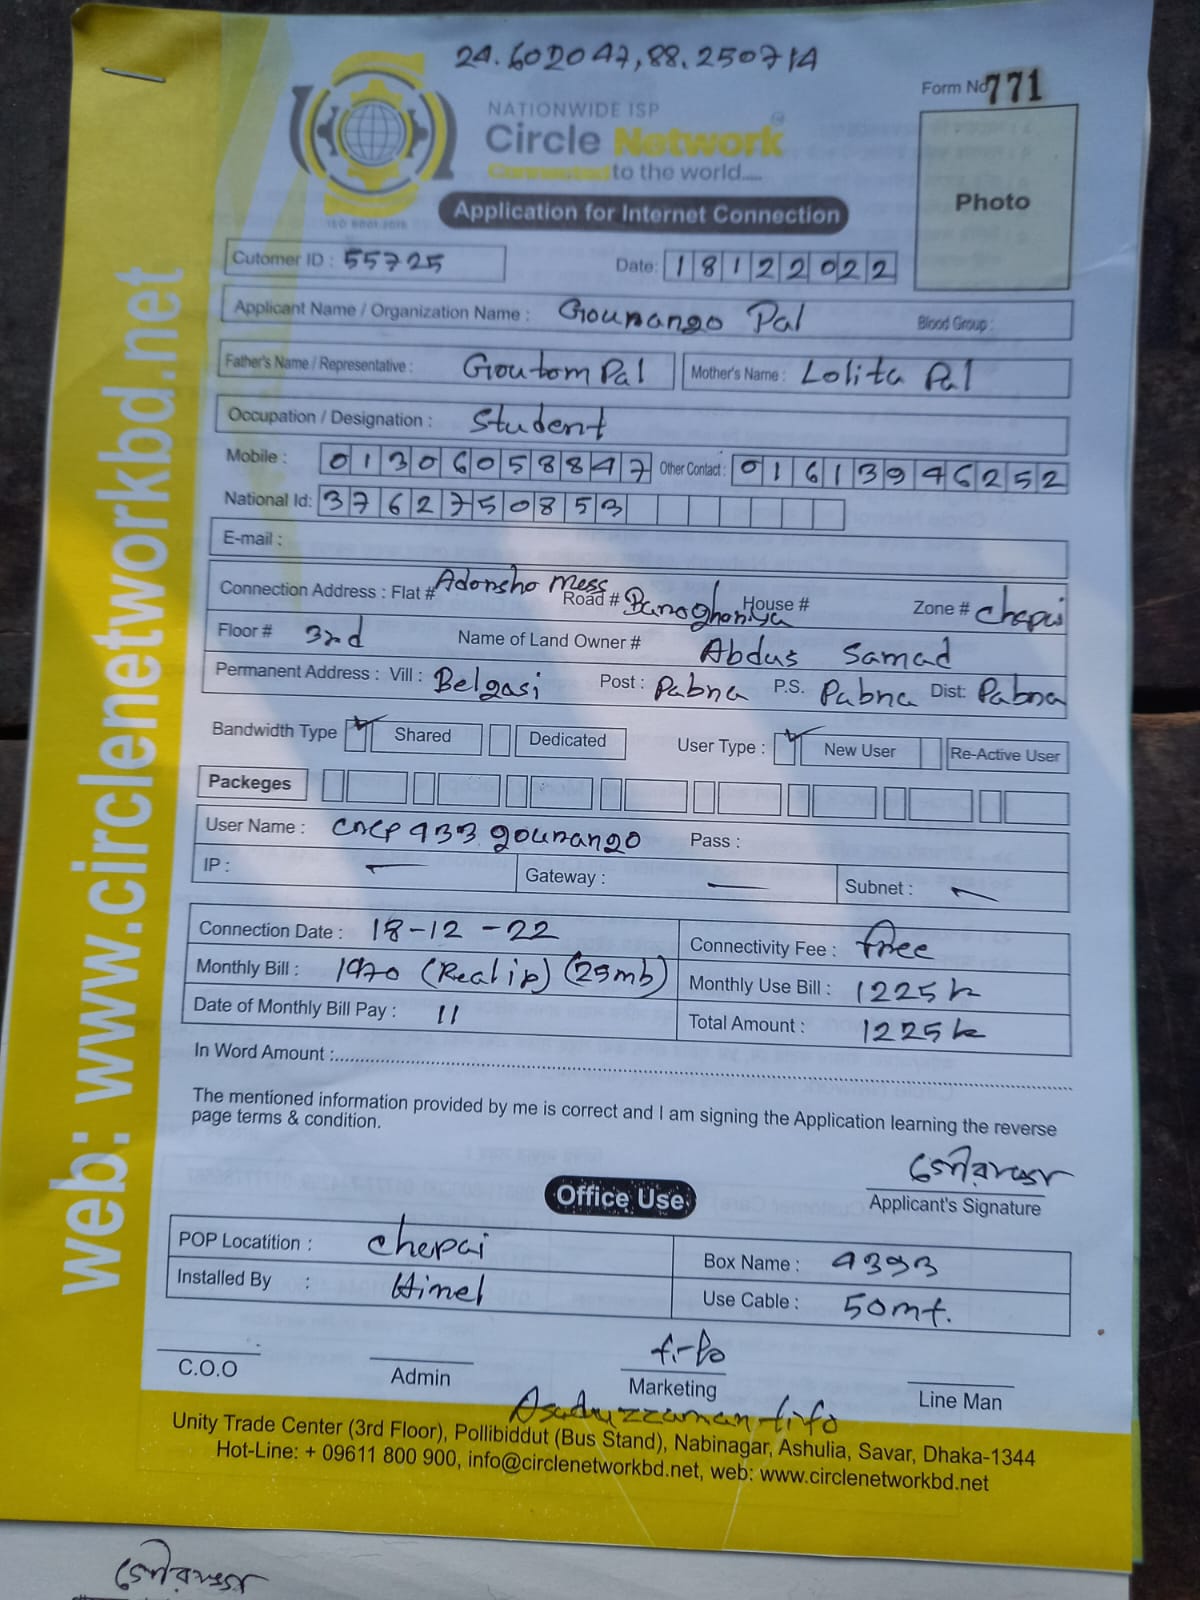 24.602047,88.250714
Form No 771
NATIONWIDE ISP
Circle Network
Connected to the world....
ISO 9001:2015
Photo
Application for Internet Connection
Cutomer ID : 55725 Date: 18122022
Applicant Name / Organization Name : Gourango Pal Blood Group :
Father's Name / Representative : Goutom Pal Mother's Name : Lolita Pal
Occupation / Designation : Student
Mobile : 01306058847 Other Contact : 01613946252
National Id: 3762750853
E-mail :
Connection Address : Flat # Adorsho Mess Road # Baroghoriya House # Zone # Chapai
Floor # 3rd Name of Land Owner # Abdus Samad
Permanent Address : Vill : Belgasi Post : Pabna P.S. Pabna Dist: Pabna
Bandwidth Type Shared Dedicated User Type : New User Re-Active User
Packeges
User Name : cncp933gourango Pass :
IP : — Gateway : — Subnet : —
Connection Date : 18-12-22 Connectivity Fee : free
Monthly Bill : 1970 (Real ip) (25mb) Monthly Use Bill : 1225 k
Date of Monthly Bill Pay : 11 Total Amount : 1225 k
In Word Amount :
The mentioned information provided by me is correct and I am signing the Application learning the reverse
page terms & condition.
গৌরাঙ্গ
Applicant's Signature
Office Use
POP Locatition : Chapai Box Name : 4393
Installed By : Himel Use Cable : 50mt.
C.O.O Admin Marketing Line Man
Asaduzzaman tifo
Unity Trade Center (3rd Floor), Pollibiddut (Bus Stand), Nabinagar, Ashulia, Savar, Dhaka-1344
Hot-Line: + 09611 800 900, info@circlenetworkbd.net, web: www.circlenetworkbd.net
web: www.circlenetworkbd.net
গৌরাঙ্গ